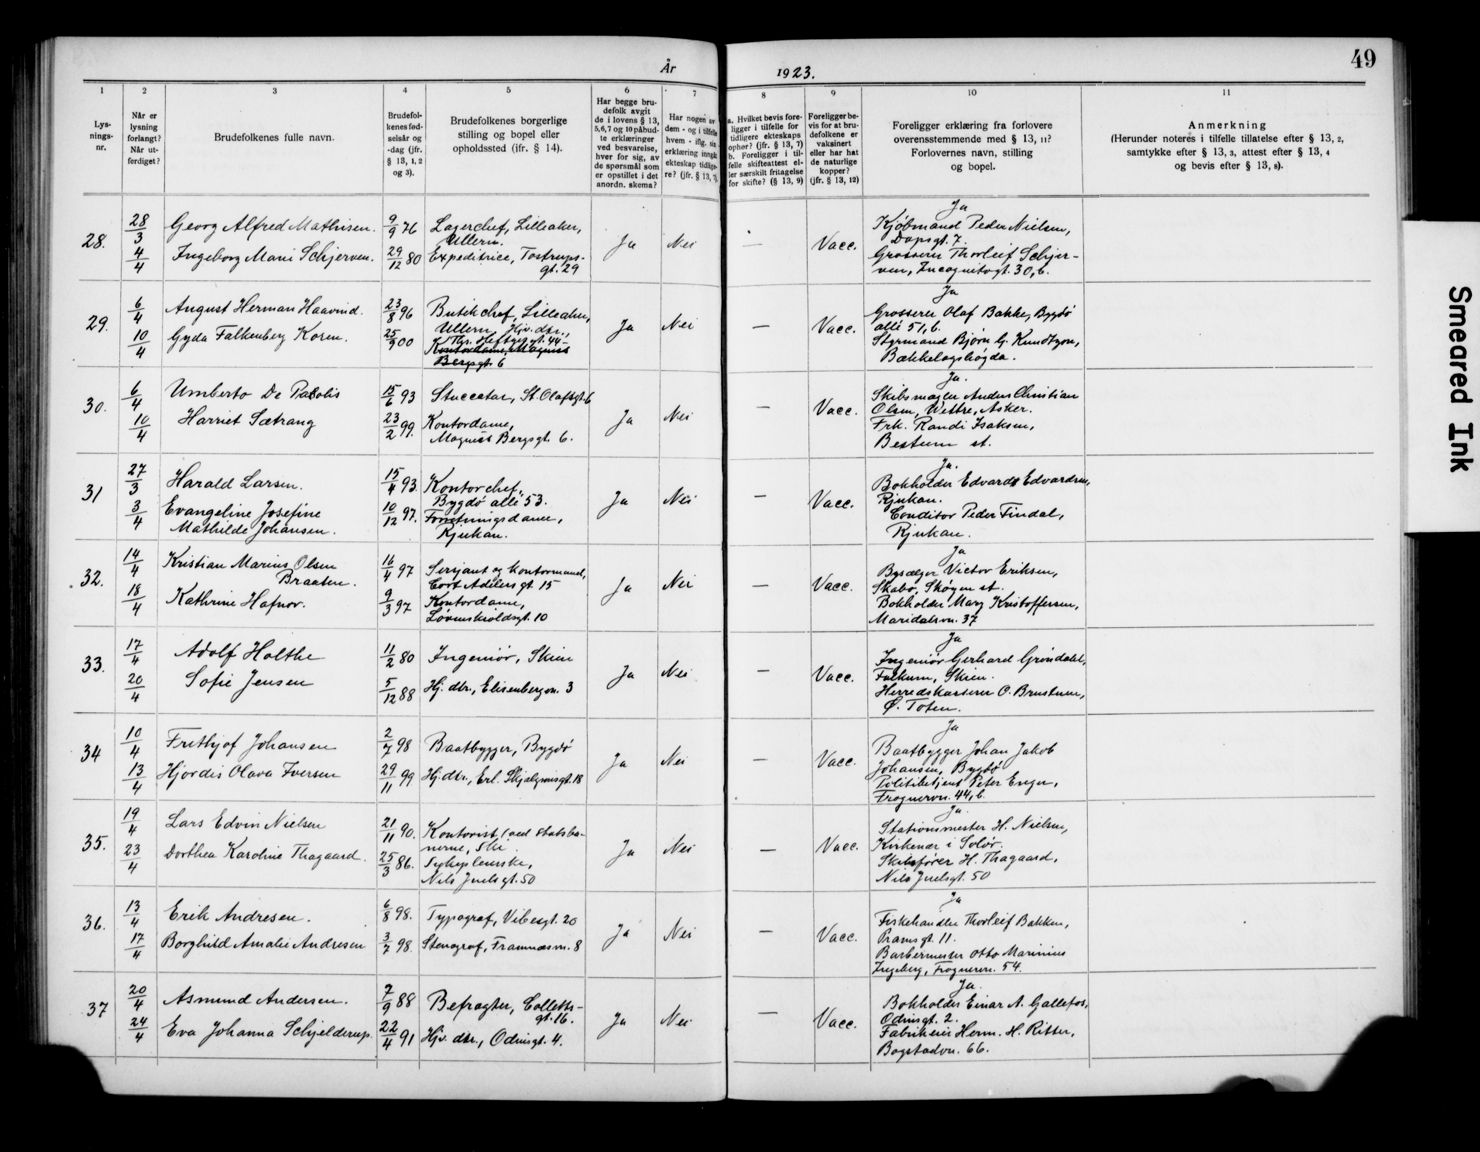 49
År 1923.
1 2 3 4 5 6 7 8 9 10 11
Lys-
nings-
nr.
Når er
lysning
forlangt?
Når ut-
ferdiget?
Brudefolkenes fulle navn.
Brudefol-
kenes fød-
selsår og
-dag (jfr.
§ 13, 1, 2
og 3).
Brudefolkenes borgerlige
stilling og bopel eller
opholdssted (ifr. § 14).
Har begge bru-
defolk avgit
de i lovens § 13,
5,6,7 og 10 påbud-
te erklæringer
ved besvarelse,
hver for sig, av
de spørsmål som
er opstillet i det
anordn. skema?
Har nogen av
dem - og i tilfelle
hvem - iflg. sin
erklæring inngått
ekteskap tidlige-
re? (jfr. § 13, 7).
a. Hvilket bevis fore-
ligger i tilfelle for
tidligere ekteskaps
ophør? (jfr. § 13, 7)
b. Foreligger i til-
felle skifteattest el-
ler særskilt fritagelse
for skifte? (§ 13, 9)
Foreligger be-
vis for at bru-
defolkene er
vaksinert
eller har hat
de naturlige
kopper?
(jfr. § 13, 12)
Foreligger erklæring fra forlovere
overensstemmende med § 13, 11?
Forlovernes navn, stilling
og bopel.
Anmerkning
(Herunder noteres i tilfelle tillatelse efter § 13, 2,
samtykke efter § 13, 3, attest efter § 13, 4
og bevis efter § 13, 8).
28.
28/3
4/4
Georg Alfred Mathisen.
Ingeborg Marie Schjerven.
9/9 76
29/12 80
Lagerchef, Lilleaker,
Ullern.
Expeditrice, Tostrups-
gt. 29
Ja
Nei
—
Vacc.
Ja
Kjøbmand Peder Nielsen,
Dopsgt. 7.
Grosserer Thorleif Schjer-
ven, Incognitogt. 30, b.
29.
6/4
10/4
August Herman Haavind.
Gyda Falkenberg Koren.
23/8 96
25/9 00
Butikchef, Lilleaker,
Ullern, Hjv. dtr.,
Th. Heftyesgt. 44-
Kontordame, Magnus
Bergsgt. 6
Ja
Nei
—
Vacc.
Ja
Grosserer Olaf Bakke, Bygdø
allé 51, b.
Styrmand Bjørn G. Kundtzon,
Bækkelagshøgda.
30.
6/4
10/4
Umberto De Pacolis
Harriet Sætrang
15/6 93
23/2 99.
Stuccatør, St. Olafsgt. 6
Kontordame,
Magnus Bergsgt. 6.
Ja
Nei
—
Vacc.
Ja.
Skibsmægler Anders Christian
Olsen, Wettre, Asker.
Frk. Randi Isaksen,
Bestum st.
31
27/3
3/4
Harald Larsen.
Evangeline Josefine
Mathilde Johansen.
15/4 93.
10/12 97.
Kontorchef,
Bygdø allé 53.
Forretningsdame,
Rjukan.
Ja
Nei
—
Vacc.
Ja.
Bokholder Edvard Edvardsen,
Rjukan.
Conditor Peder Tindal,
Rjukan.
32.
14/4
18/4
Kristian Marius Olsen
Braaten.
Kathrine Hafnor.
16/4 97
9/3 97
Serjant og kontormand,
Cort Adelers gt. 15
Kontordame,
Løvenskioldsgt. 10
Ja
Nei
—
Vacc.
Ja
Bysælger Victor Eriksen,
Skabo, Skøyen st.
Bokholder Mary Kristoffersen,
Maridalsvn. 37
33.
17/4
20/4
Adolf Holthe
Sofie Jensen
11/2 80
5/12 88
Ingeniør, Skien
Hj. dtr., Elisenbergvn. 3
Ja
Nei
—
Vacc.
Ja
Ingeniør Gerhard Grøndahl,
Falkum, Skien.
Herredskasserer O. Brustuen,
Ø. Toten.
34
10/4
13/4
Frithjof Johansen
Hjordis Olava Iversen
2/7 98
29/11 99
Baatbygger, Bygdø
Hj. dtr., Erl. Skjalgssønsgt. 18
Ja
Nei
—
Vacc.
Ja
Baatbygger Johan Jakob
Johansen, Bygdø
Politibetjent Peter Enger,
Frognervn. 44, b.
35.
19/4
23/4
Lars Edvin Nielsen
Dorthea Karoline Thagaard.
21/11 90.
25/3 86.
Kontorist ved statsba-
nerne, Ski
Sykepleierske,
Nils Juelsgt. 50
Ja
Nei
—
Vacc.
Ja.
Stationsmester H. Nielsen,
Kirkenær i Solør.
Skibsfører H. Thagaard,
Nils Juelsgt. 50
36.
13/4
17/4
Erik Andresen.
Borghild Amalie Andresen
6/8 98.
3/7 98.
Typograf, Vibesgt. 20
Stenograf, Framnæsvn. 8
Ja
Nei
—
Vacc.
Ja
Fiskehandler Thorleif Bakken,
Pramsgt. 11.
Barbermester Otto Marinius
Ingeberg, Frognervn. 54.
37
20/4
24/4
Asmund Andersen.
Eva Johanna Schjelderup.
7/9 88
22/4 91
Befragter, Colletts-
gt. 16.
Hjv. dtr., Odinsgt. 4.
Ja
Nei
—
Vacc.
Ja.
Bokholder Einar A. Gallefos,
Odinsgt. 2.
Fabrikeier Herm. H. Ritter,
Bogstadvn. 66.
Smeared Ink